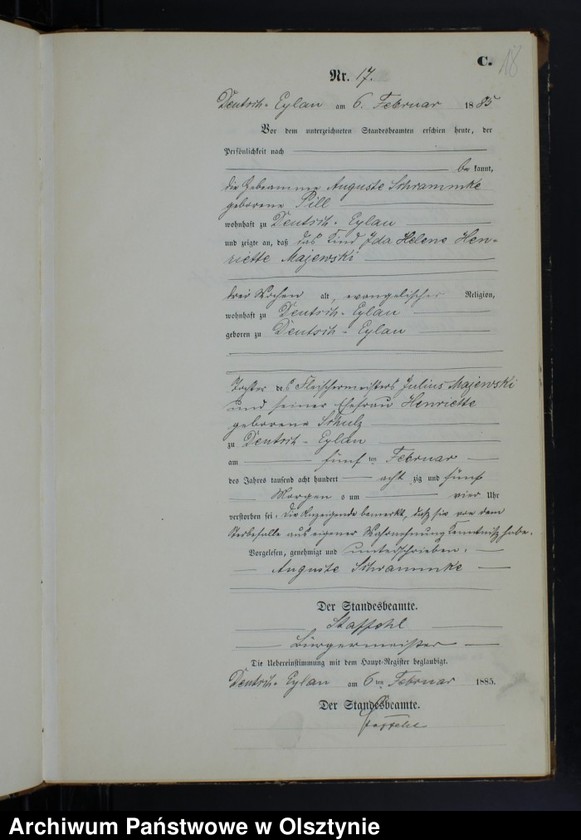 C.
18
Nr. 17.
Deutsch-Eylau am 6. Februar 1885
Vor dem unterzeichneten Standesbeamten erschien heute, der
Persönlichkeit nach
bekannt,
die Hebeamme Auguste Schrammke
geborene Pill
wohnhaft zu Deutsch-Eylau
und zeigte an, daß das Kind Ida Helene Hen-
riette Majewski
drei Wochen alt, evangelischer Religion,
wohnhaft zu Deutsch-Eylau
geboren zu Deutsch-Eylau
Tochter des Fleischermeisters Julius Majewski
und seiner Ehefrau Henriette
geborene Schulz
zu Deutsch-Eylau
am fünften Februar
des Jahres tausend acht hundert achtzig und fünf
Morgens um vier Uhr
verstorben sei. Die Anzeigende bemerkte, daß sie von dem
Sterbefalle aus eigener Wahrnehmung Kenntniß habe.
Vorgelesen, genehmigt und unterschrieben.
Auguste Schrammke
Der Standesbeamte.
Staffehl
Bürgermeister
Die Uebereinstimmung mit dem Haupt-Register beglaubigt.
Deutsch-Eylau am 6ten Februar 1885.
Der Standesbeamte.
Archiwum Państwowe w Olsztynie